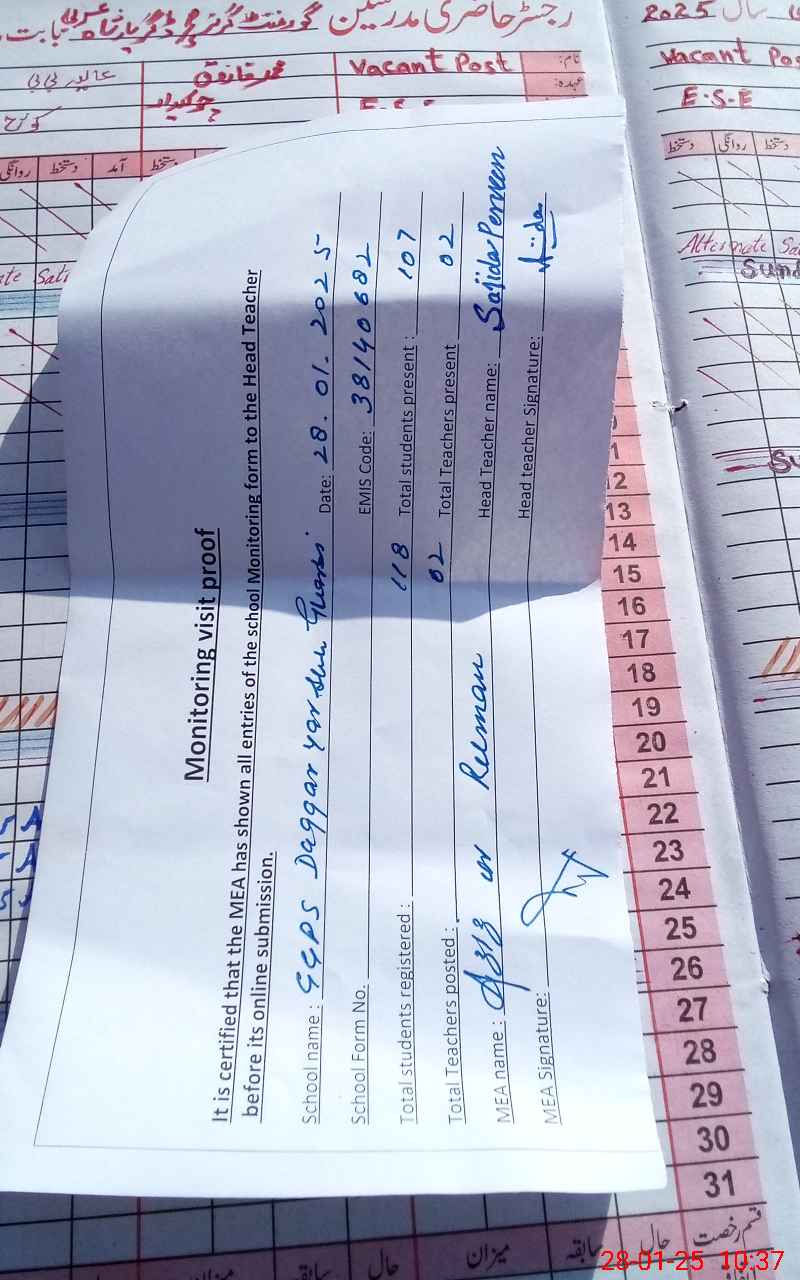 رجسٹر حاضری مدرسین گورنمنٹ گرلز
2025
نام: Vacant Post
عہدہ: E.S.E
محمد فاروق
چوکیدار
عالیہ بی بی
Vacant Pos
E.S.E
روانگی دستخط آمد دستخط
دستخط روانگی دستخط
Alternate Sa
Sund
Su
ate Sat
Monitoring visit proof
It is certified that the MEA has shown all entries of the school Monitoring form to the Head Teacher
before its online submission.
School name : GGPS Daggar Yar Shu Gharbi Date: 28.01.2025
School Form No. EMIS Code: 38140682
Total students registered : 118 Total students present : 107
Total Teachers posted : 02 Total Teachers present 02
MEA name : Aziz ur Rehman Head Teacher name: Sajida Perveen
MEA Signature: Head teacher Signature: Sajida
12
13
14
15
16
17
18
19
20
21
22
23
24
25
26
27
28
29
30
31
قسم رخصت حال سابقہ میزان حال سابقہ میزان
28-01-25 10:37